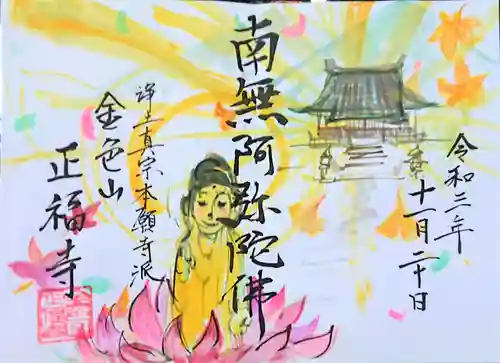 令和三年
十一月二十日
南無阿弥陀佛
浄土真宗本願寺派
金色山
正福寺